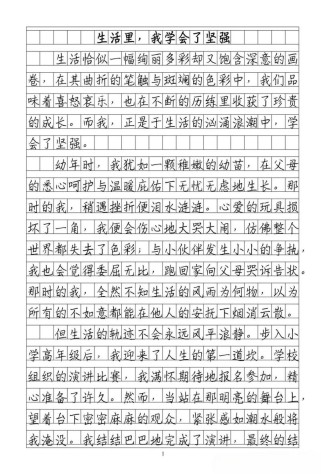 生活里，我学会了坚强
生活恰似一幅绚丽多彩却又饱含深意的画
卷，在其曲折的笔触与斑斓的色彩中，我们品
味着喜怒哀乐，也在不断的历练里收获了珍贵
的成长。而我，正是于生活的汹涌浪潮中，学
会了坚强。
幼年时，我犹如一颗稚嫩的幼苗，在父母
的悉心呵护与温暖庇佑下无忧无虑地生长。那
时的我，稍遇挫折便泪水涟涟。心爱的玩具损
坏了一角，我便会伤心地大哭大闹，仿佛整个
世界都失去了色彩；与小伙伴发生小小的争执，
我也会觉得委屈无比，跑回家向父母哭诉告状。
那时的我，全然不知生活的风雨为何物，以为
所有的不如意都能在他人的安抚下烟消云散。
但生活的轨迹不会永远风平浪静。步入小
学高年级后，我迎来了人生的第一道坎。学校
组织的演讲比赛，我满怀期待地报名参加，精
心准备了许久。然而，当站在那明亮的舞台上，
望着台下密密麻麻的观众，紧张感如潮水般将
我淹没。我结结巴巴地完成了演讲，最终的结
1